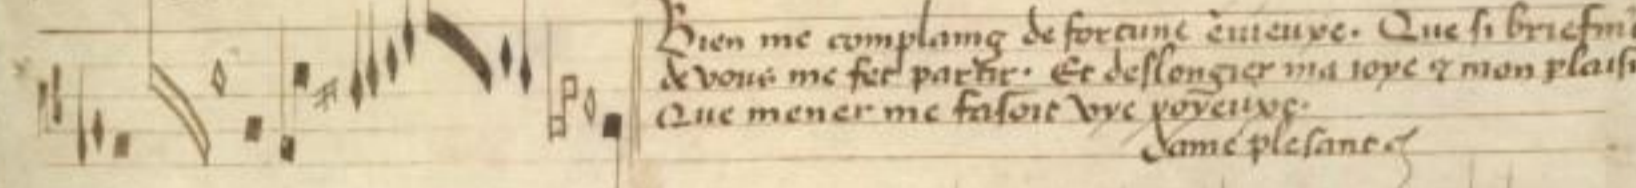 Bien me complaing de fortune enuieuxe. Que si briefm̄
de vous me fet partir. Et deslongier ma ioye & mon plaisi
Que mener me fasoit vye yoyeuxe.
Dame plesant